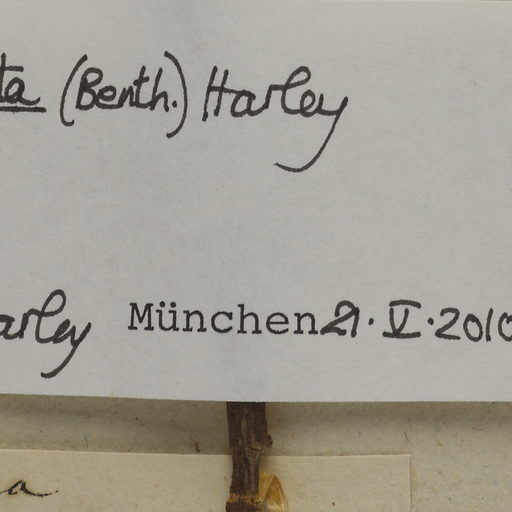 ta (Benth.) Harley
arley München 21.V.2010
a